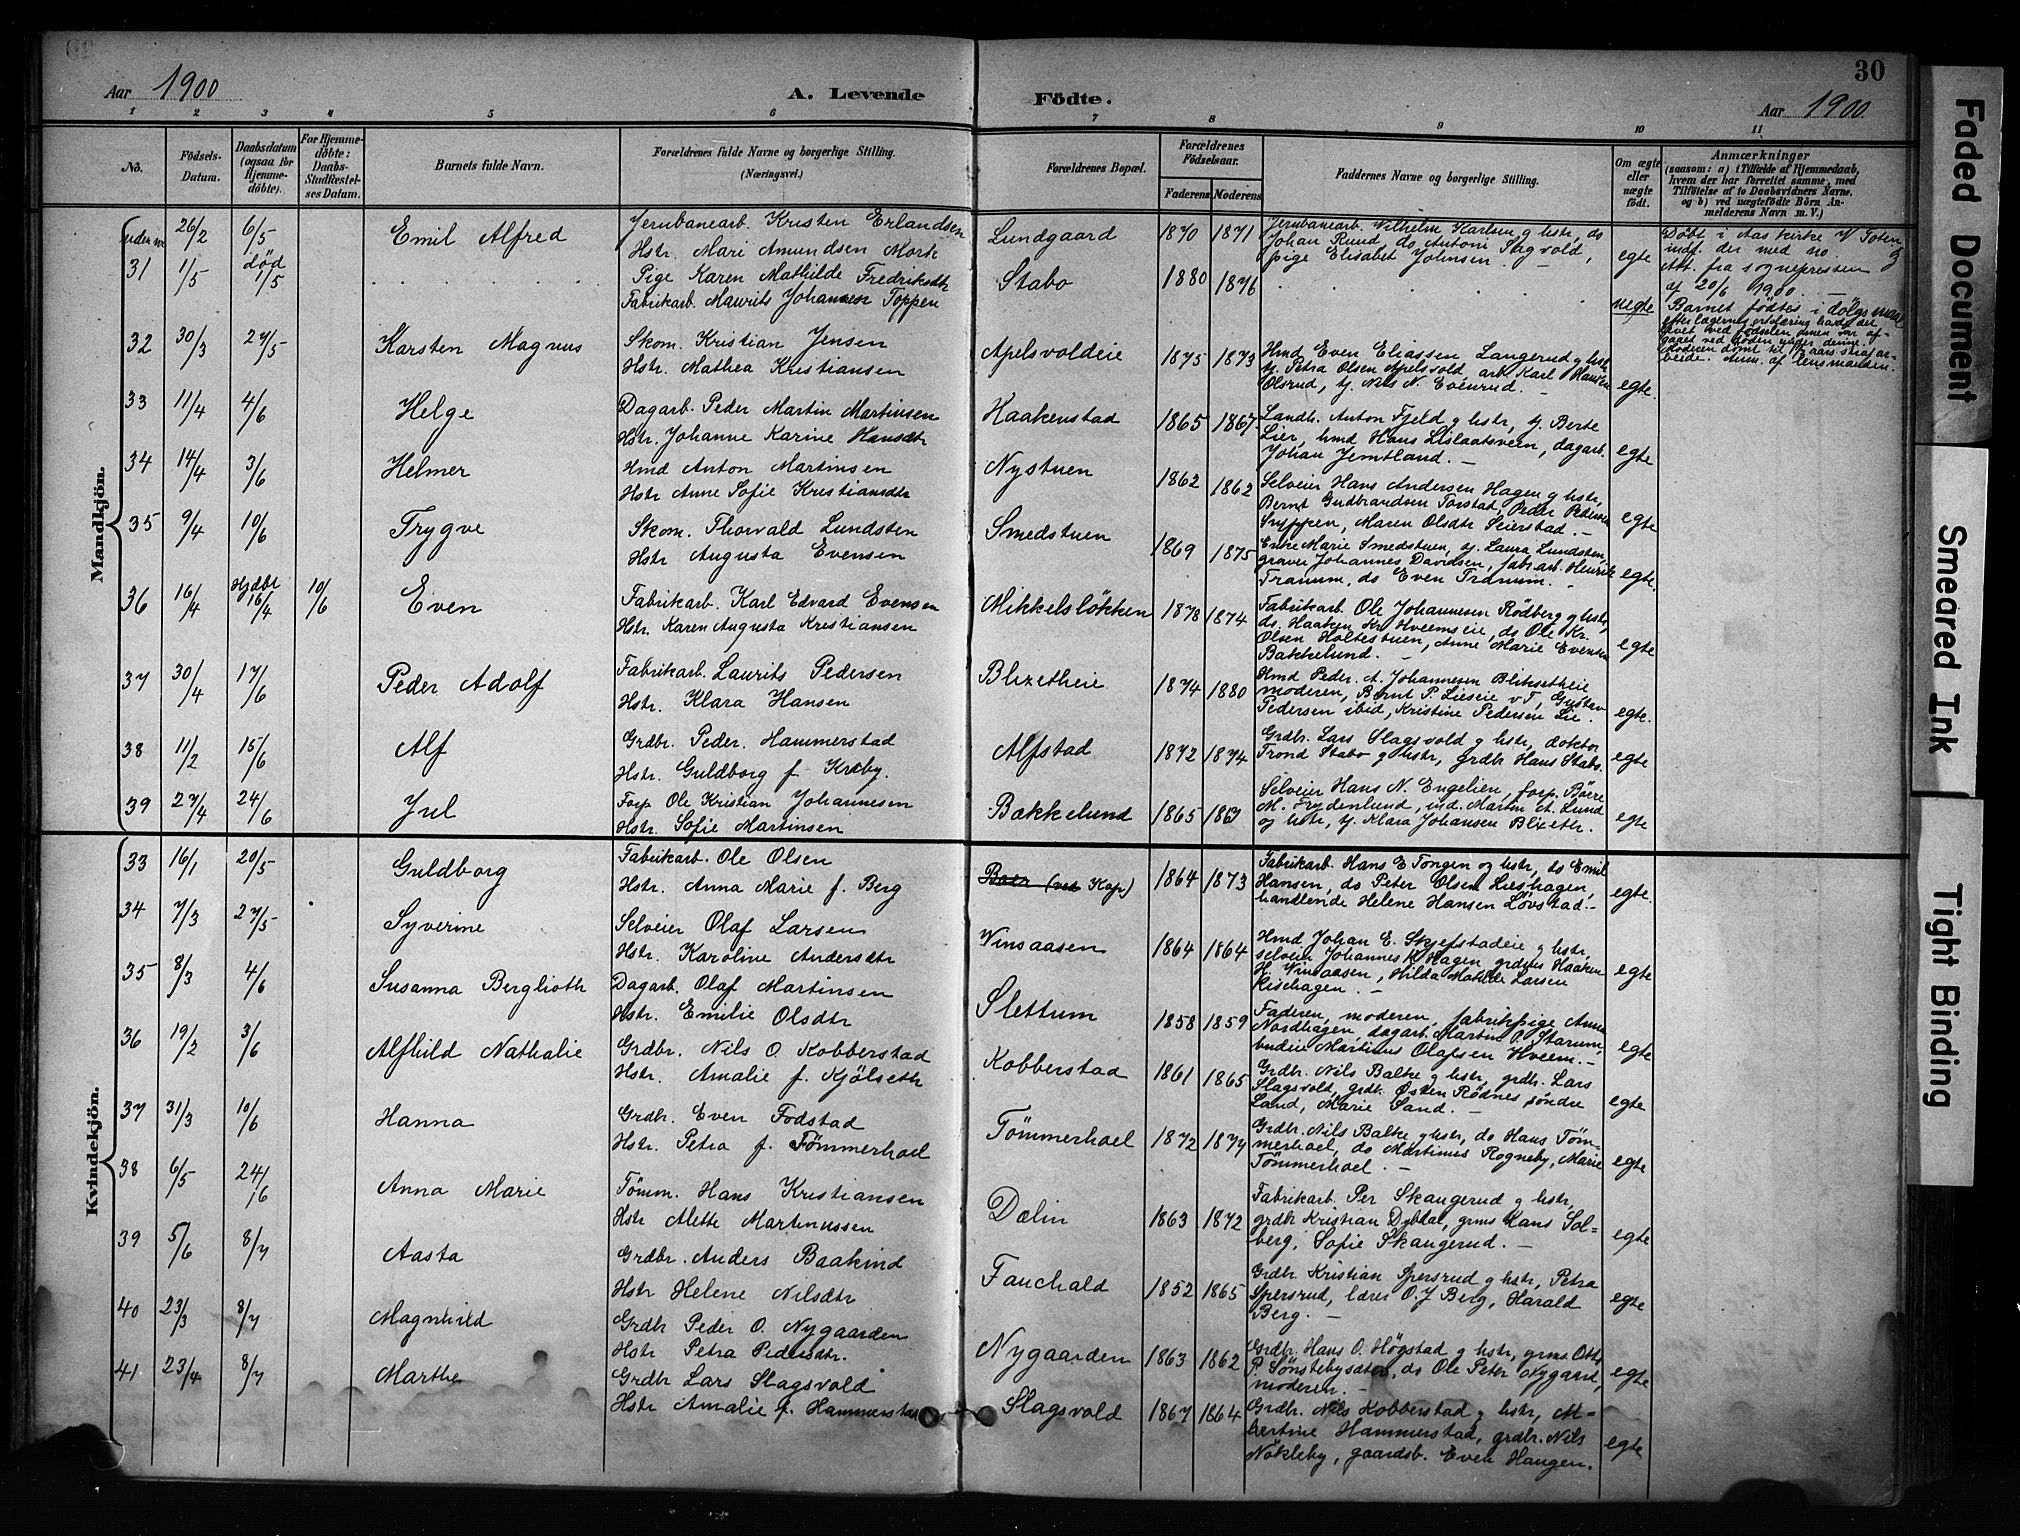 30
Aar 1900
A. Levende Födte.
Aar 1900
1 2 3 4 5 6 7 8 9 10 11
No.
Födsels-Datum.
Daabsdatum (ogsaa for Hjemmedöbte).
For Hjemmedöbte: Daabs-Stadfæstelses Datum.
Barnets fulde Navn.
Forældrenes fulde Navne og borgerlige Stilling.
(Næringsvei.)
Forældrenes Bopæl.
Forældrenes Födselsaar.
Faderens Moderens
Faddernes Navne og borgerlige Stilling.
Om ægte eller uægte födt.
Anmærkninger
(saasom: a) i Tilfælde af Hjemmedaab, hvem der har forrettet samme, med Tilföielse af to Daabsvidners Navne, og b) ved uægtefödte Börn Anmelderens Navn m. V.)
Mandkjön.
uden no 26/2 6/5 Emil Alfred
Jernbanearb. Kristen Erlandsen
Hstr. Mari Amundsen Mork
Lundgaard 1870 1871
Jernbanearb. Vilhelm Karlsen g hstr, do
Johan Ruud, do Antoni Slagsvold,
pige Elisabet Johnsen. —
egte
Döbt i Aas kirke V Toten
indf. der med no.
Att. fra sognepresten
af 20/6 1900. —
31 1/5 död 1/5
Pige Karen Mathilde Fredriksdtr
Fabrikarb. Mauritz Johansen Toppen
Stabo 1880 1876
uegte
Barnet födtes i dölgsmaal
efter lægernes erklæring havde det
levet ved födselen men var af-
gaaet ved döden under denne.
Moderen dömt til 1 1/2 aars strafar-
beide. Anm. af lensmanden.
32 30/3 27/5 Karsten Magnus
Skom. Kristian Jensen
Hstr. Mathea Kristiansen
Apelsvoldeie 1875 1873
Hmd Even Eliassen Langerud g hstr
tj. Petra Olsen Apelsvold, arb. Karl Hansen
Olsrud, tj. Nils N. Evenrud. —
egte.
33 11/4 4/6 Helge
Dagarb. Peder Martin Martinsen
Hstr. Johanne Karine Hansdtr
Haakenstad 1865 1867
Landh. Anton Fjeld g hstr, tj. Berte
Lier, hmd Hans Lislaatsveen, dagarb.
Johan Jemtland. —
egte
34 14/4 3/6 Helmer
Hmd Anton Martinsen
Hstr Anne Sofie Kristiansdtr
Nystuen 1862 1862
Selveier Hans Andersen Hagen g hstr,
Bernt Gudbrandsen Torstad, Peder Petersen
Suppen, Maren Olsdtr Seierstad. —
egte
35 9/4 10/6 Trygve
Skom. Thorvald Lundsten
Hstr Augusta Evensen
Smedstuen 1869 1875
Enke Marie Smedstuen, tj. Laura Lundsten,
graver Johannes Davidsen, fabr.arb. Henrik
Tranum, do Even Tranum. —
egte.
36 16/4 Hjdbt 16/4 10/6 Even
Fabrikarb. Karl Edvard Evensen
Hstr. Karen Augusta Kristiansen
Mikkelslökken 1878 1874
Fabrikarb Ole Johannesen Rödberg g hstr,
ds. Haaken Kr. Hveemseie, do Ole Kr.
Olsen Holtestuen, Anne Marie Evensen
Bakkelund. —
egte
37 30/4 17/6 Peder Adolf
Fabrikarb. Laurits Pedersen
Hstr. Klara Hansen
Blixetheie 1874 1880
Hmd Peder A. Johannesen Bliksetheie
moderen, Bernt P. Lieseie v T, Gustav
Pedersen ibid, Kristine Pedersen Lie.
egte.
38 11/2 15/6 Alf
Grdbr. Peder Hammerstad
Hstr. Guldborg f. Kraby.
Alfstad 1872 1874
Grdbr. Lars Slagsvold g hstr, doktor
Trond Stabo g hstr, grdbr Hans Stabo.
egte
39 27/4 24/6 Jul
Forp Ole Kristian Johannesen
Hstr. Sofie Martinsen
Bakkelund 1865
Selveier Hans N. Engelien, forp. Börre
M. Frydenlund, ind. Martin A. Lund
og hstr, tj. Klara Johansen Blixeth.
egte
Kvindekjön.
33 16/1 20/5 Guldborg
Fabrikarb. Ole Olsen
Hstr. Anna Marie f. Berg
(ved Kap) 1864 1873
Fabrikarb. Hans E Tongen og hstr, do Emil
Hansen, do Peter Olsen Lieshagen,
handlende Helene Hansen Lövstad.—
egte.
34 7/3 27/5 Syverine
Selveier Olaf Larsen
Hstr. Karoline Andersdtr
Vinsaasen 1864 1864
Hmd Johan E. Skjefstadeie g hstr,
selveier Johannes K. Hagen, grdms Haaken
H. Vinsaasen, Hilda Matilde Larsen
Kisehagen. —
egte
35 8/3 4/6 Susanna Berglioth
Dagarb. Olaf Martinsen
Hstr. Emilie Olsdtr
Slettum 1858 1859
Faderen, moderen, fabrikpige Anna
Nordhagen, dagarb. Martin O. Starum,
budeie Martinus Olafsen Hveem. —
egte
36 19/2 3/6 Alfhild Nathalie
Grdbr. Nils O. Kobberstad
Hstr. Amalie f. Kjölseth
Kobberstad 1861 1865
Grdbr. Nils Balke g hstr, grdbr. Lars
Slagsvold, grdbr. Östen Rödnes, söndre
Land, Marie Sand. —
egte
37 31/3 10/6 Hanna
Grdbr. Even Fodstad
Hstr. Petra f. Tömmerhoel
Tömmerhoel 1872 1874
Grdbr. Nils Balke g hstr, do Hans Töm-
merhoel, do Martinus Rogneby, Marie
Tömmerhoel. —
egte
38 6/5 24/6 Anna Marie
Tömm. Hans Kristiansen
Hstr Alette Martinussen
Dælin 1863 1872
Fabrikarb. Per Skangerud g hstr,
grdbr Kristian Dybdal, grms Hans Sol-
berg, Sofie Skangerud. —
egte
39 5/6 8/7 Aasta
Grdbr. Anders Baakind
Hstr Helene Nilsdtr
Fauchald 1852 1865
Grdbr. Kristian Spersrud g hstr, Petra
Spersrud, lærer O. J Berg, Harald
Berg. —
egte
40 23/3 8/7 Magnhild
Grdbr Peder O. Nygaarden
Hstr Petra Pedersdtr.
Nygaarden 1863 1862
Grdbr. Hans O. Högstad g hstr, grms. Otto
P. Sönstebysæter, do Ole Peter Nygaard,
moderen. —
egte
41 23/4 8/7 Marthe
Grdbr Lars Slagsvold
Hstr Amalie f. Hammerstad
Slagsvold 1867 1864
Grdbr. Nils Kobberstad g hstr, M-
bertine Hammerstad, grdbr. Nils
Nökleby, gaardsb. Even Haugen.
egte
Faded Document
Smeared Ink
Tight Binding